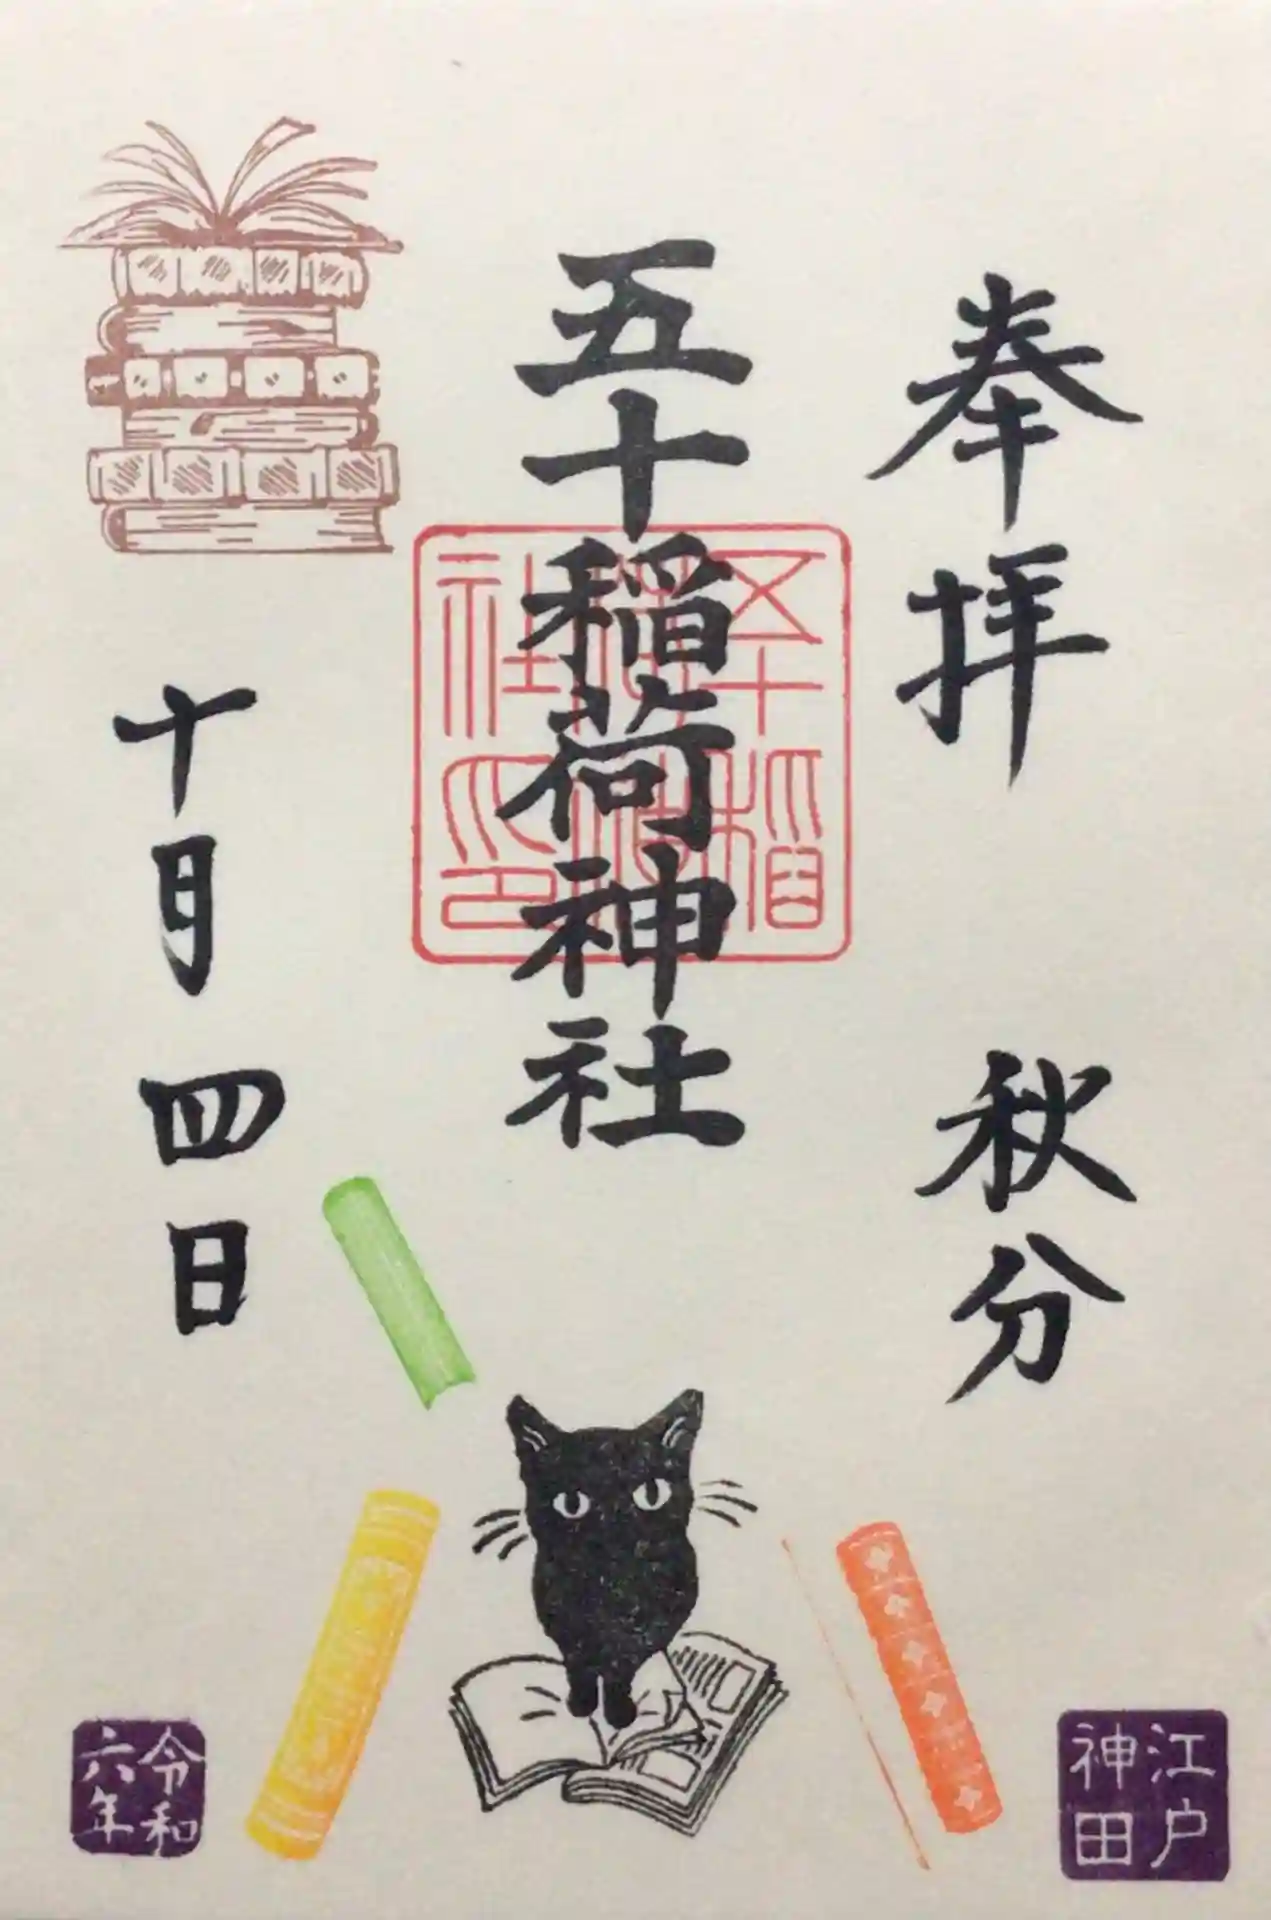 奉拝　秋分
五十稲荷神社
五十稲荷神社印
十月四日
江戸神田
令和六年